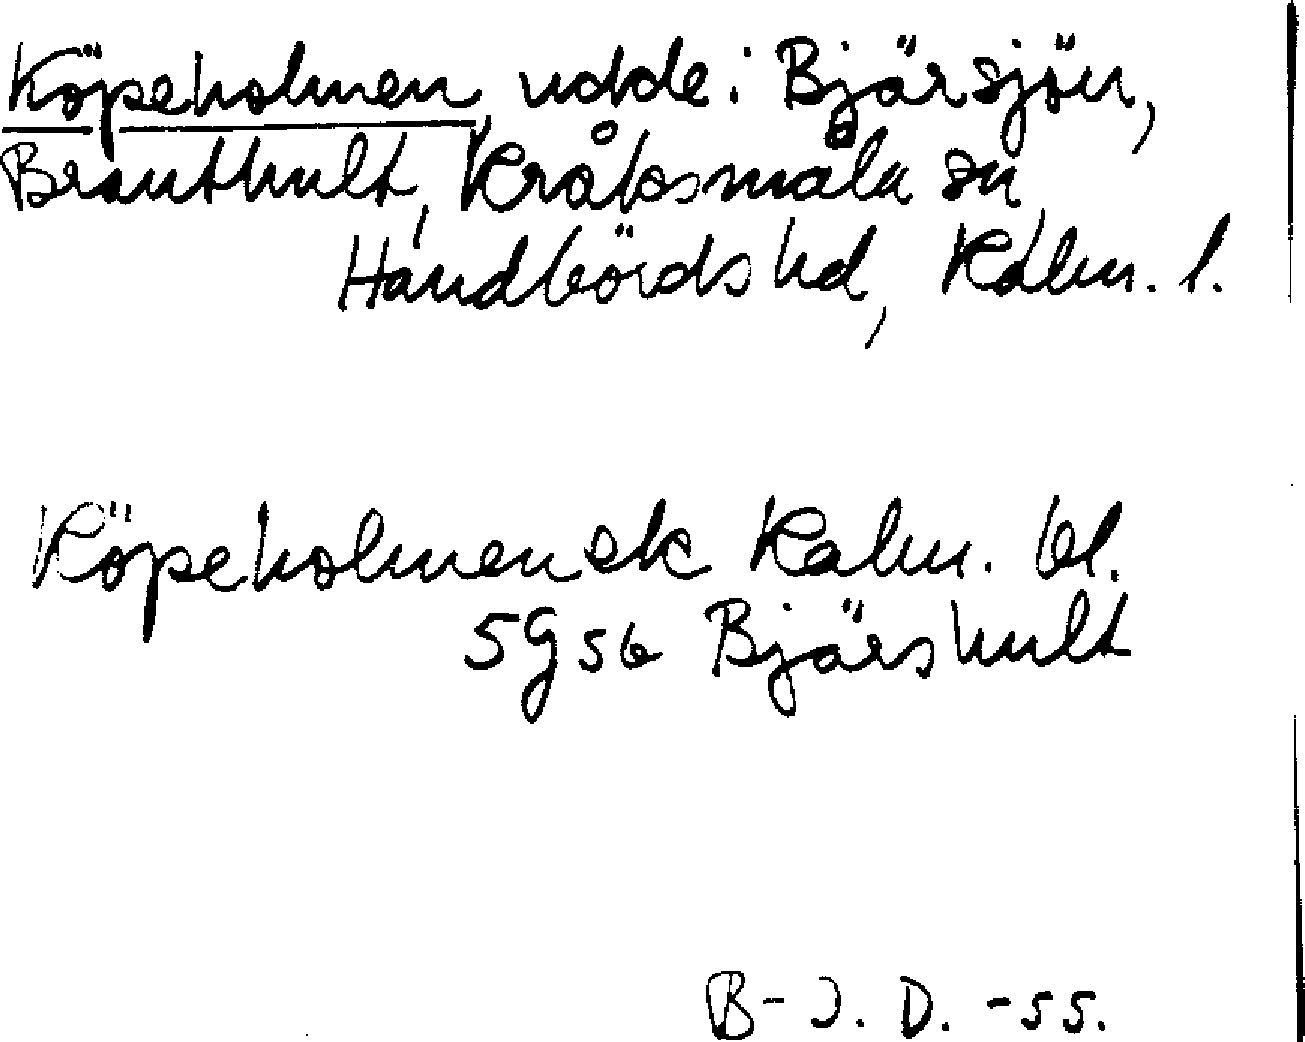 Köpeholmen, udde i Bjärsjön,
Branthult, Kråksmåla sn,
Handbörds hd, Kalm. l.
Köpeholmen ek Kalm. bl.
5 G 5 b Bjärshult
B-J. D. -55.